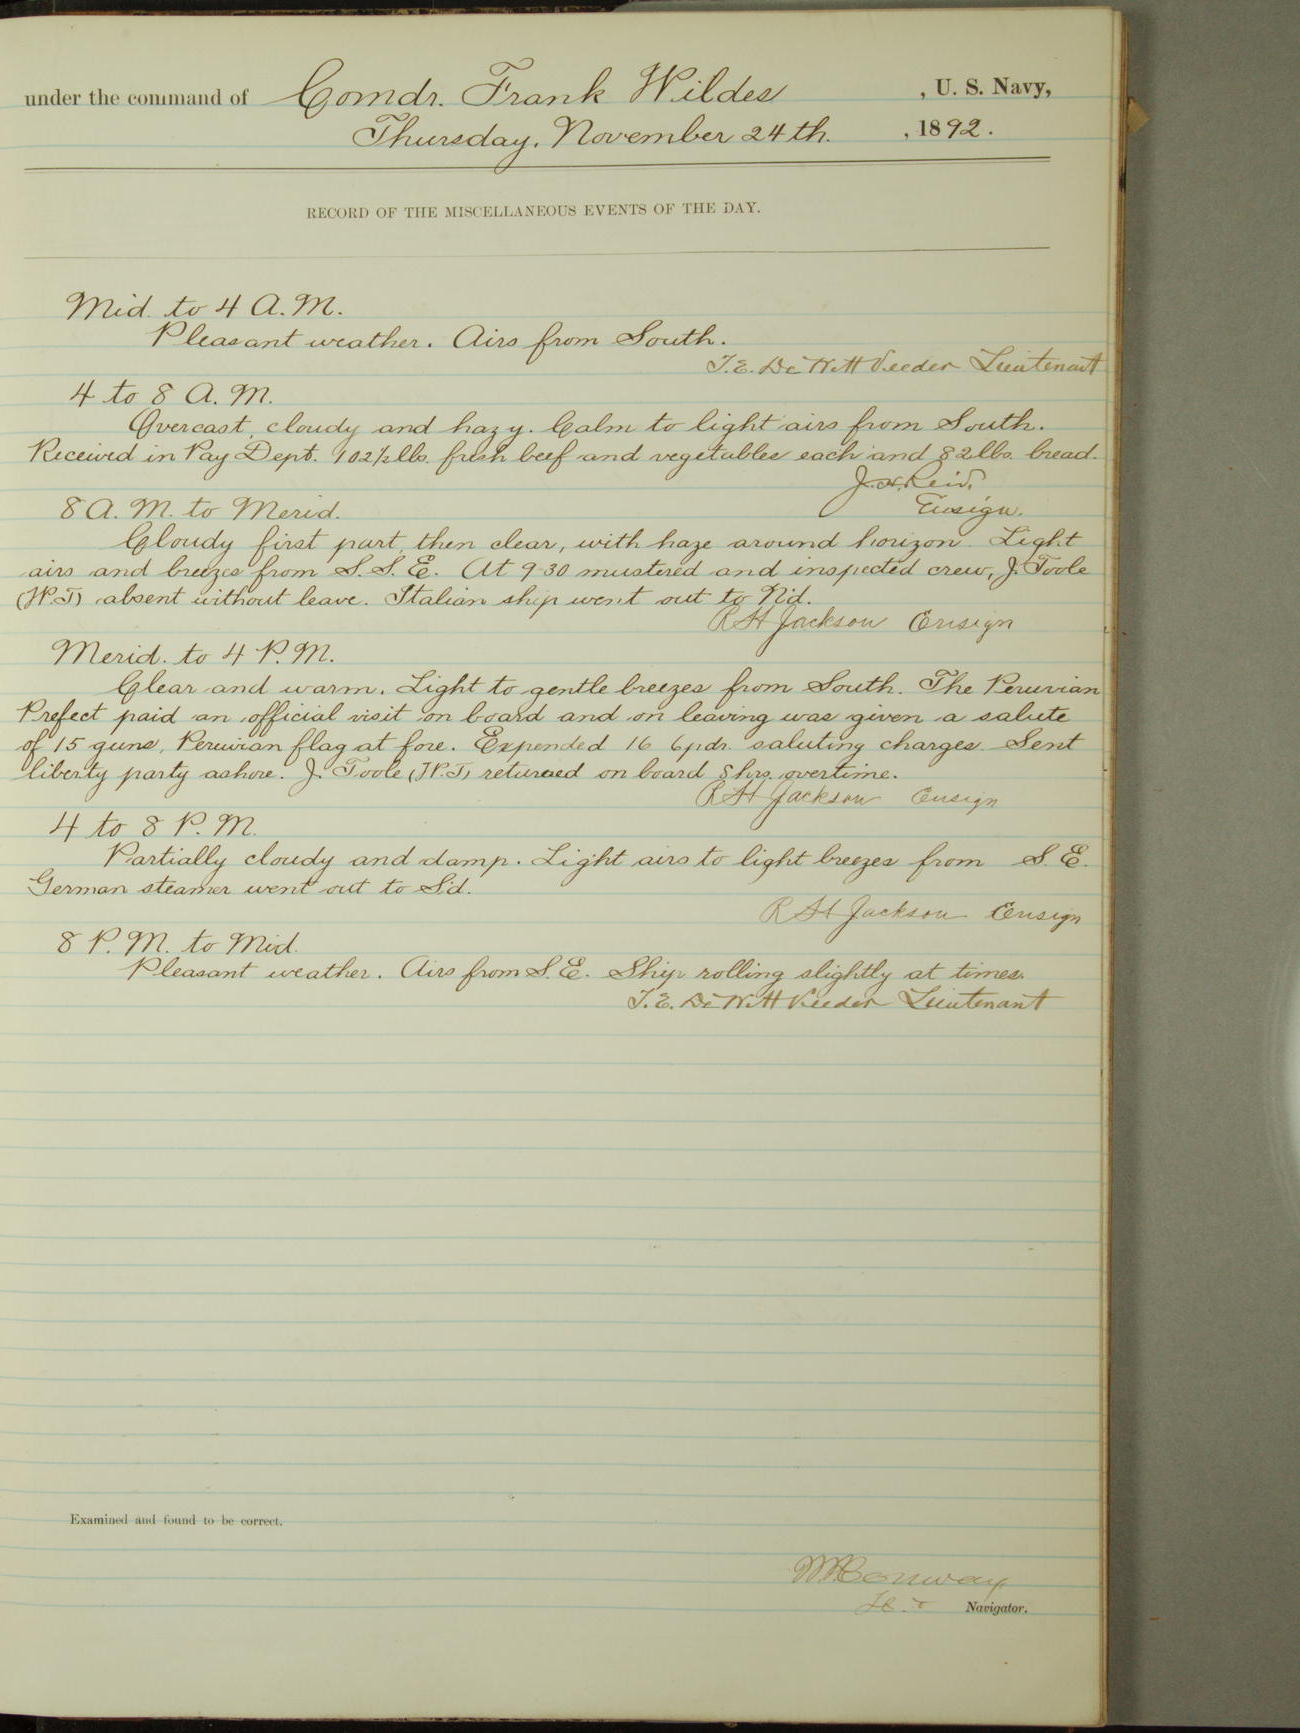 under the command of Comdr. Frank Wildes , U. S. Navy,
Thursday, November 24th. , 1892.
RECORD OF THE MISCELLANEOUS EVENTS OF THE DAY.
Mid. to 4 A.M.
Pleasant weather. Airs from South.
T.E. DeWitt Veeder Lieutenant
4 to 8 A.M.
Overcast, cloudy and hazy. Calm to light airs from South.
Received in Pay Dept. 102½ lbs. fresh beef and vegetables each and 82 lbs. bread.
J.H. Reid,
Ensign.
8 A.M. to Merid.
Cloudy first part, then clear, with haze around horizon. Light
airs and breezes from S.S.E. At 9-30 mustered and inspected crew, J. Toole
(W.T.) absent without leave. Italian ship went out to N'd.
R H Jackson Ensign
Merid. to 4 P.M.
Clear and warm. Light to gentle breezes from South. The Peruvian
Prefect paid an official visit on board and on leaving was given a salute
of 15 guns, Peruvian flag at fore. Expended 16 6pdr. saluting charges. Sent
liberty party ashore. J. Toole (W.T.) returned on board 8 hrs. overtime.
R H Jackson Ensign
4 to 8 P.M.
Partially cloudy and damp. Light airs to light breezes from S.E.
German steamer went out to S'd.
R H Jackson Ensign
8 P.M. to Mid.
Pleasant weather. Airs from S.E. Ship rolling slightly at times.
T.E. DeWitt Veeder Lieutenant
Examined and found to be correct.
Conway
Navigator.